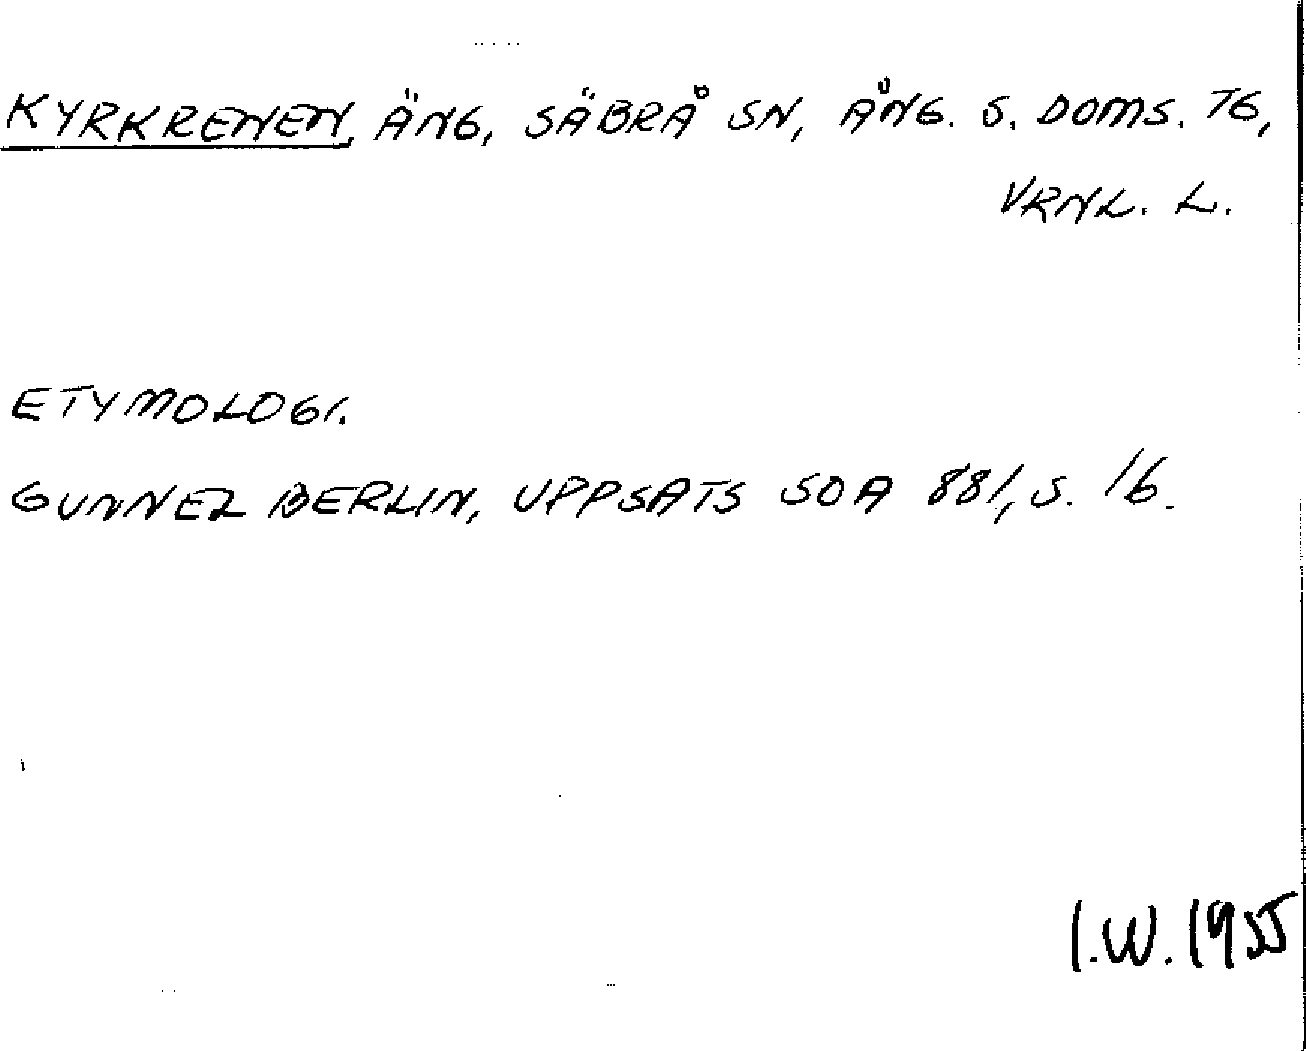 KYRKRENEN, ÄNG, SÄBRÅ SN, ÅNG. S. DOMS. TG,
VRNL. L.
ETYMOLOGI.
GUNNEL BERLIN, UPPSATS SOA 881, S. 16.
I.W. 1955